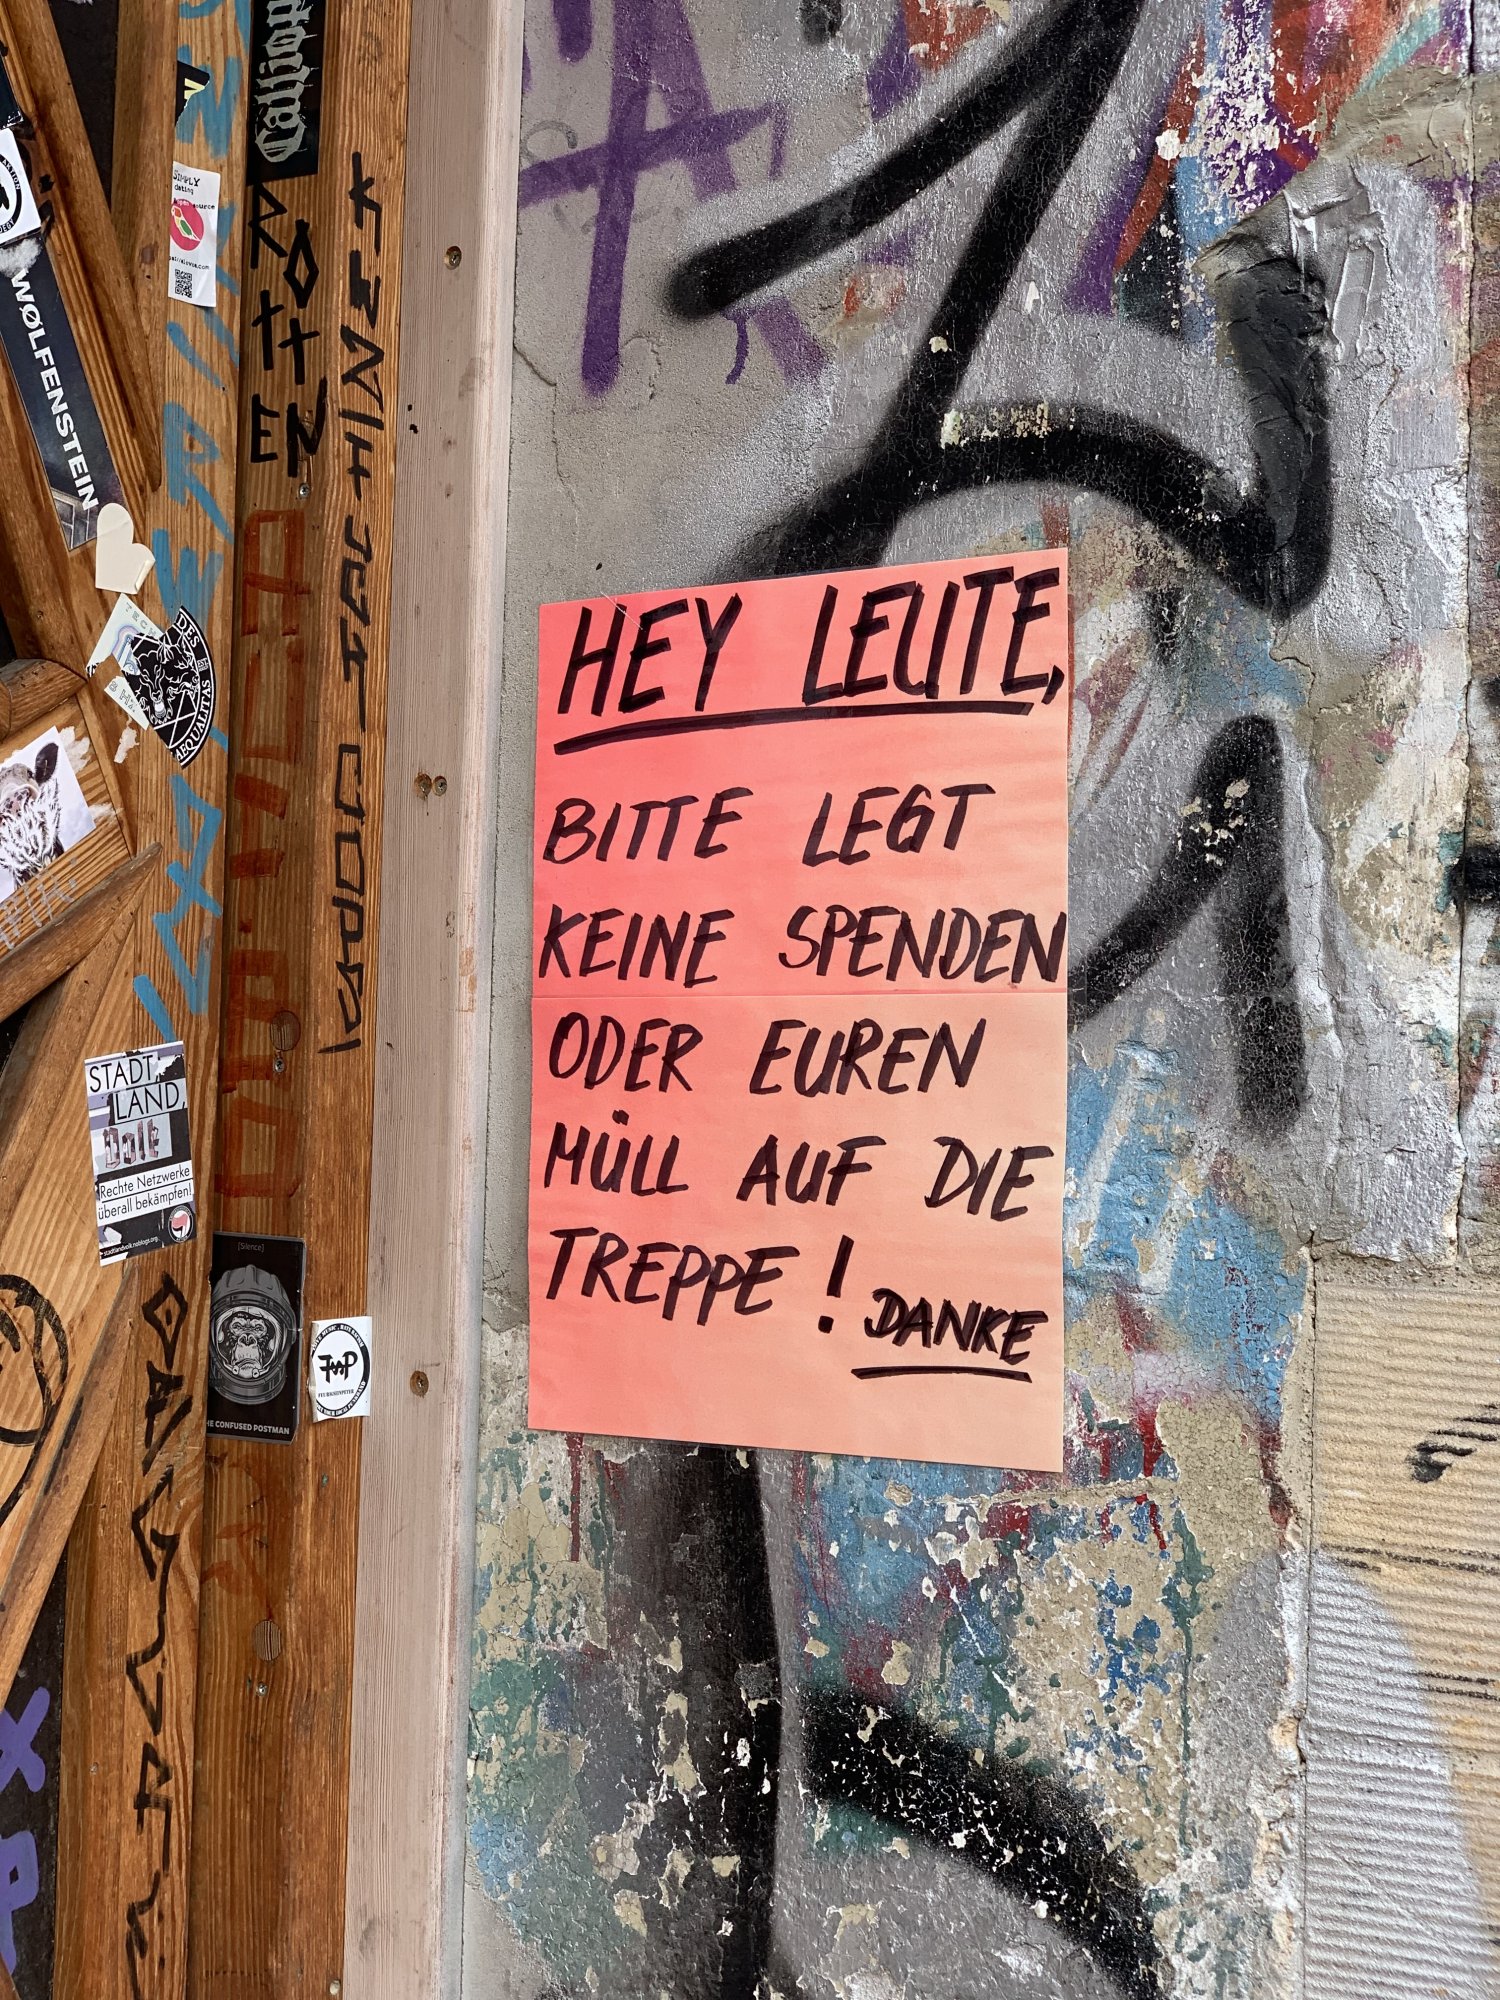 Calliop
SIMPLY
dating
open source
ROTTEN
WØLFENSTEIN
AEQUALITAS
HEY LEUTE,
BITTE LEGT
KEINE SPENDEN
ODER EUREN
MÜLL AUF DIE
TREPPE! DANKE
STADT,
LAND,
Volk
Rechte Netzwerke
überall bekämpfen!
[Silence]
HE CONFUSED POSTMAN
FEUERSHINPETER